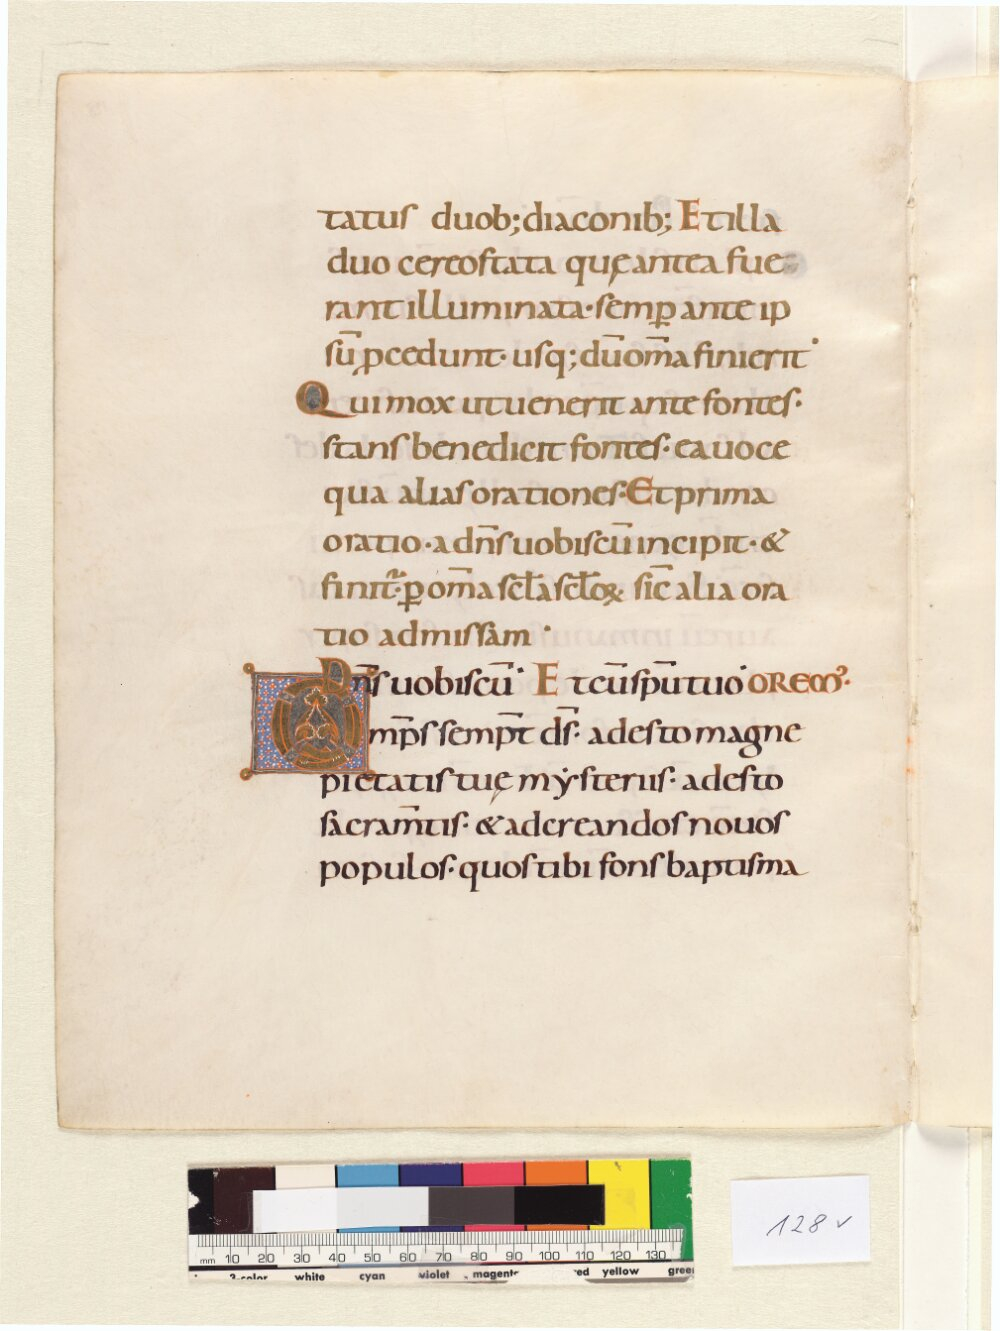 tatus duob; diaconib; Et illa
duo cereostata quę antea fue
rant illuminata· semꝑ ante ip
sū p̄cedunt· usq; dū om̄a finierit·
Qui mox ut uenerit ante fontes·
stans benedicit fontes· ea uoce
qua alias orationes· Et prima
oratio· a dn̄s uobiscū incipit· &
finit᷑· ꝑ om̄a sc̄la sc̄loꝝ sic̄ alia ora
tio ad missam·
Dn̄s uobiscū· Et cū sp̄u tuo· OREM᾽·
Omp̄s semp̄t ds̄· adesto magne
pietatis tuę mẏsteriis· adesto
sacram̄tis· & ad creandos nouos
populos· quos tibi fons baptisma
128 v
mm 10 20 30 40 50 60 70 80 90 100 110 120 130
3-color white cyan violet magenta red yellow green